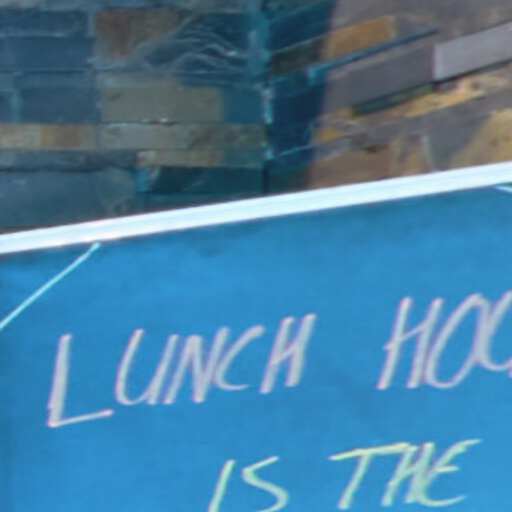 LUNCH
IS THE